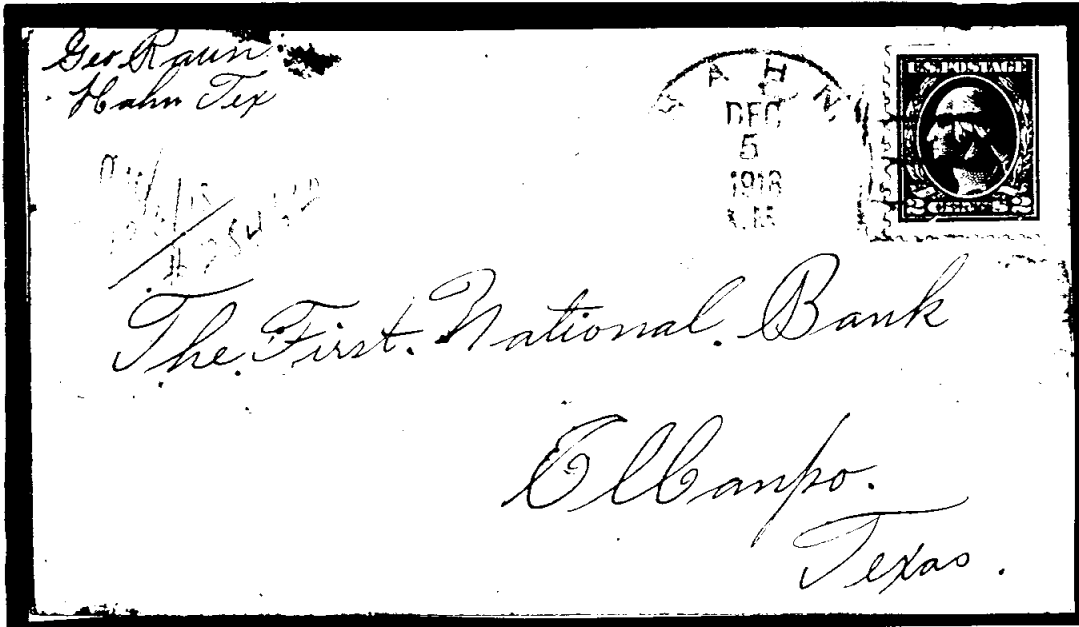 Geo Raun
Hahn Tex
HAHN
DEC
5
1918
A.M.
U.S.POSTAGE
2 CENTS 2
The First. National. Bank
El Canpo.
Texas.